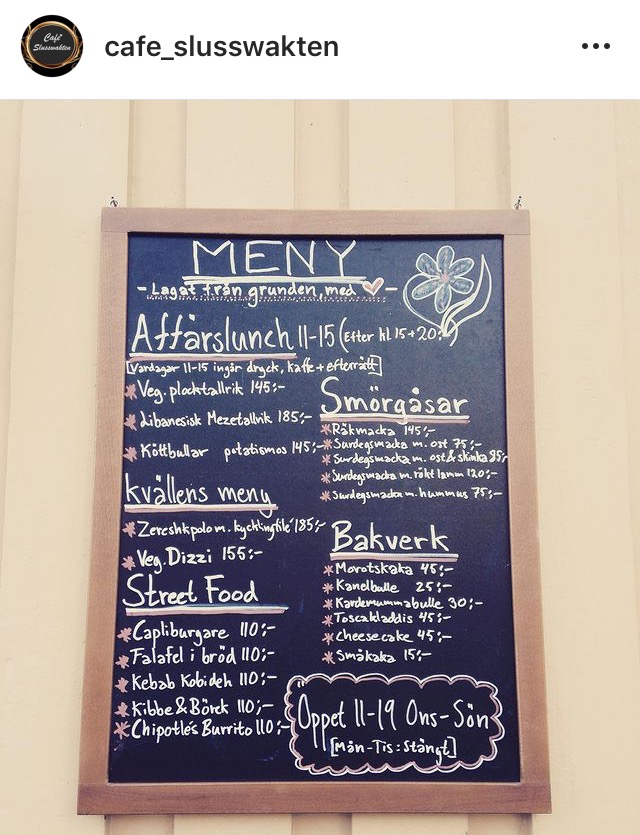 Café
Slusswakten
cafe_slusswakten
MENY
- Lagat från grunden, med -
Affärslunch 11-15 (Efter kl. 15 + 20:-)
[Vardagar 11-15 ingår dryck, kaffe + efterrätt]
Veg. plocktallrik 145:-
Libanesisk Mezetallrik 185:-
Köttbullar potatismos 145:-
kvällens meny
Zereshkpolo m. kycklingfilé 185:-
Veg. Dizzi 155:-
Street Food
Capliburgare 110:-
Falafel i bröd 110:-
Kebab Kobideh 110:-
Kibbe & Börek 110:-
Chipotlés Burrito 110:-
Smörgåsar
Räkmacka 145:-
Surdegsmacka m. ost 75:-
Surdegsmacka m. ost & skinka 85:-
Surdegsmacka m. rökt lamm 120:-
Surdegsmacka m. hummus 75:-
Bakverk
Morotskaka 45:-
Kanelbulle 25:-
Kardemummabulle 30:-
Toscakladdis 45:-
Cheesecake 45:-
Småkaka 15:-
Öppet 11-19 Ons-Sön
[Mån-Tis: Stängt]